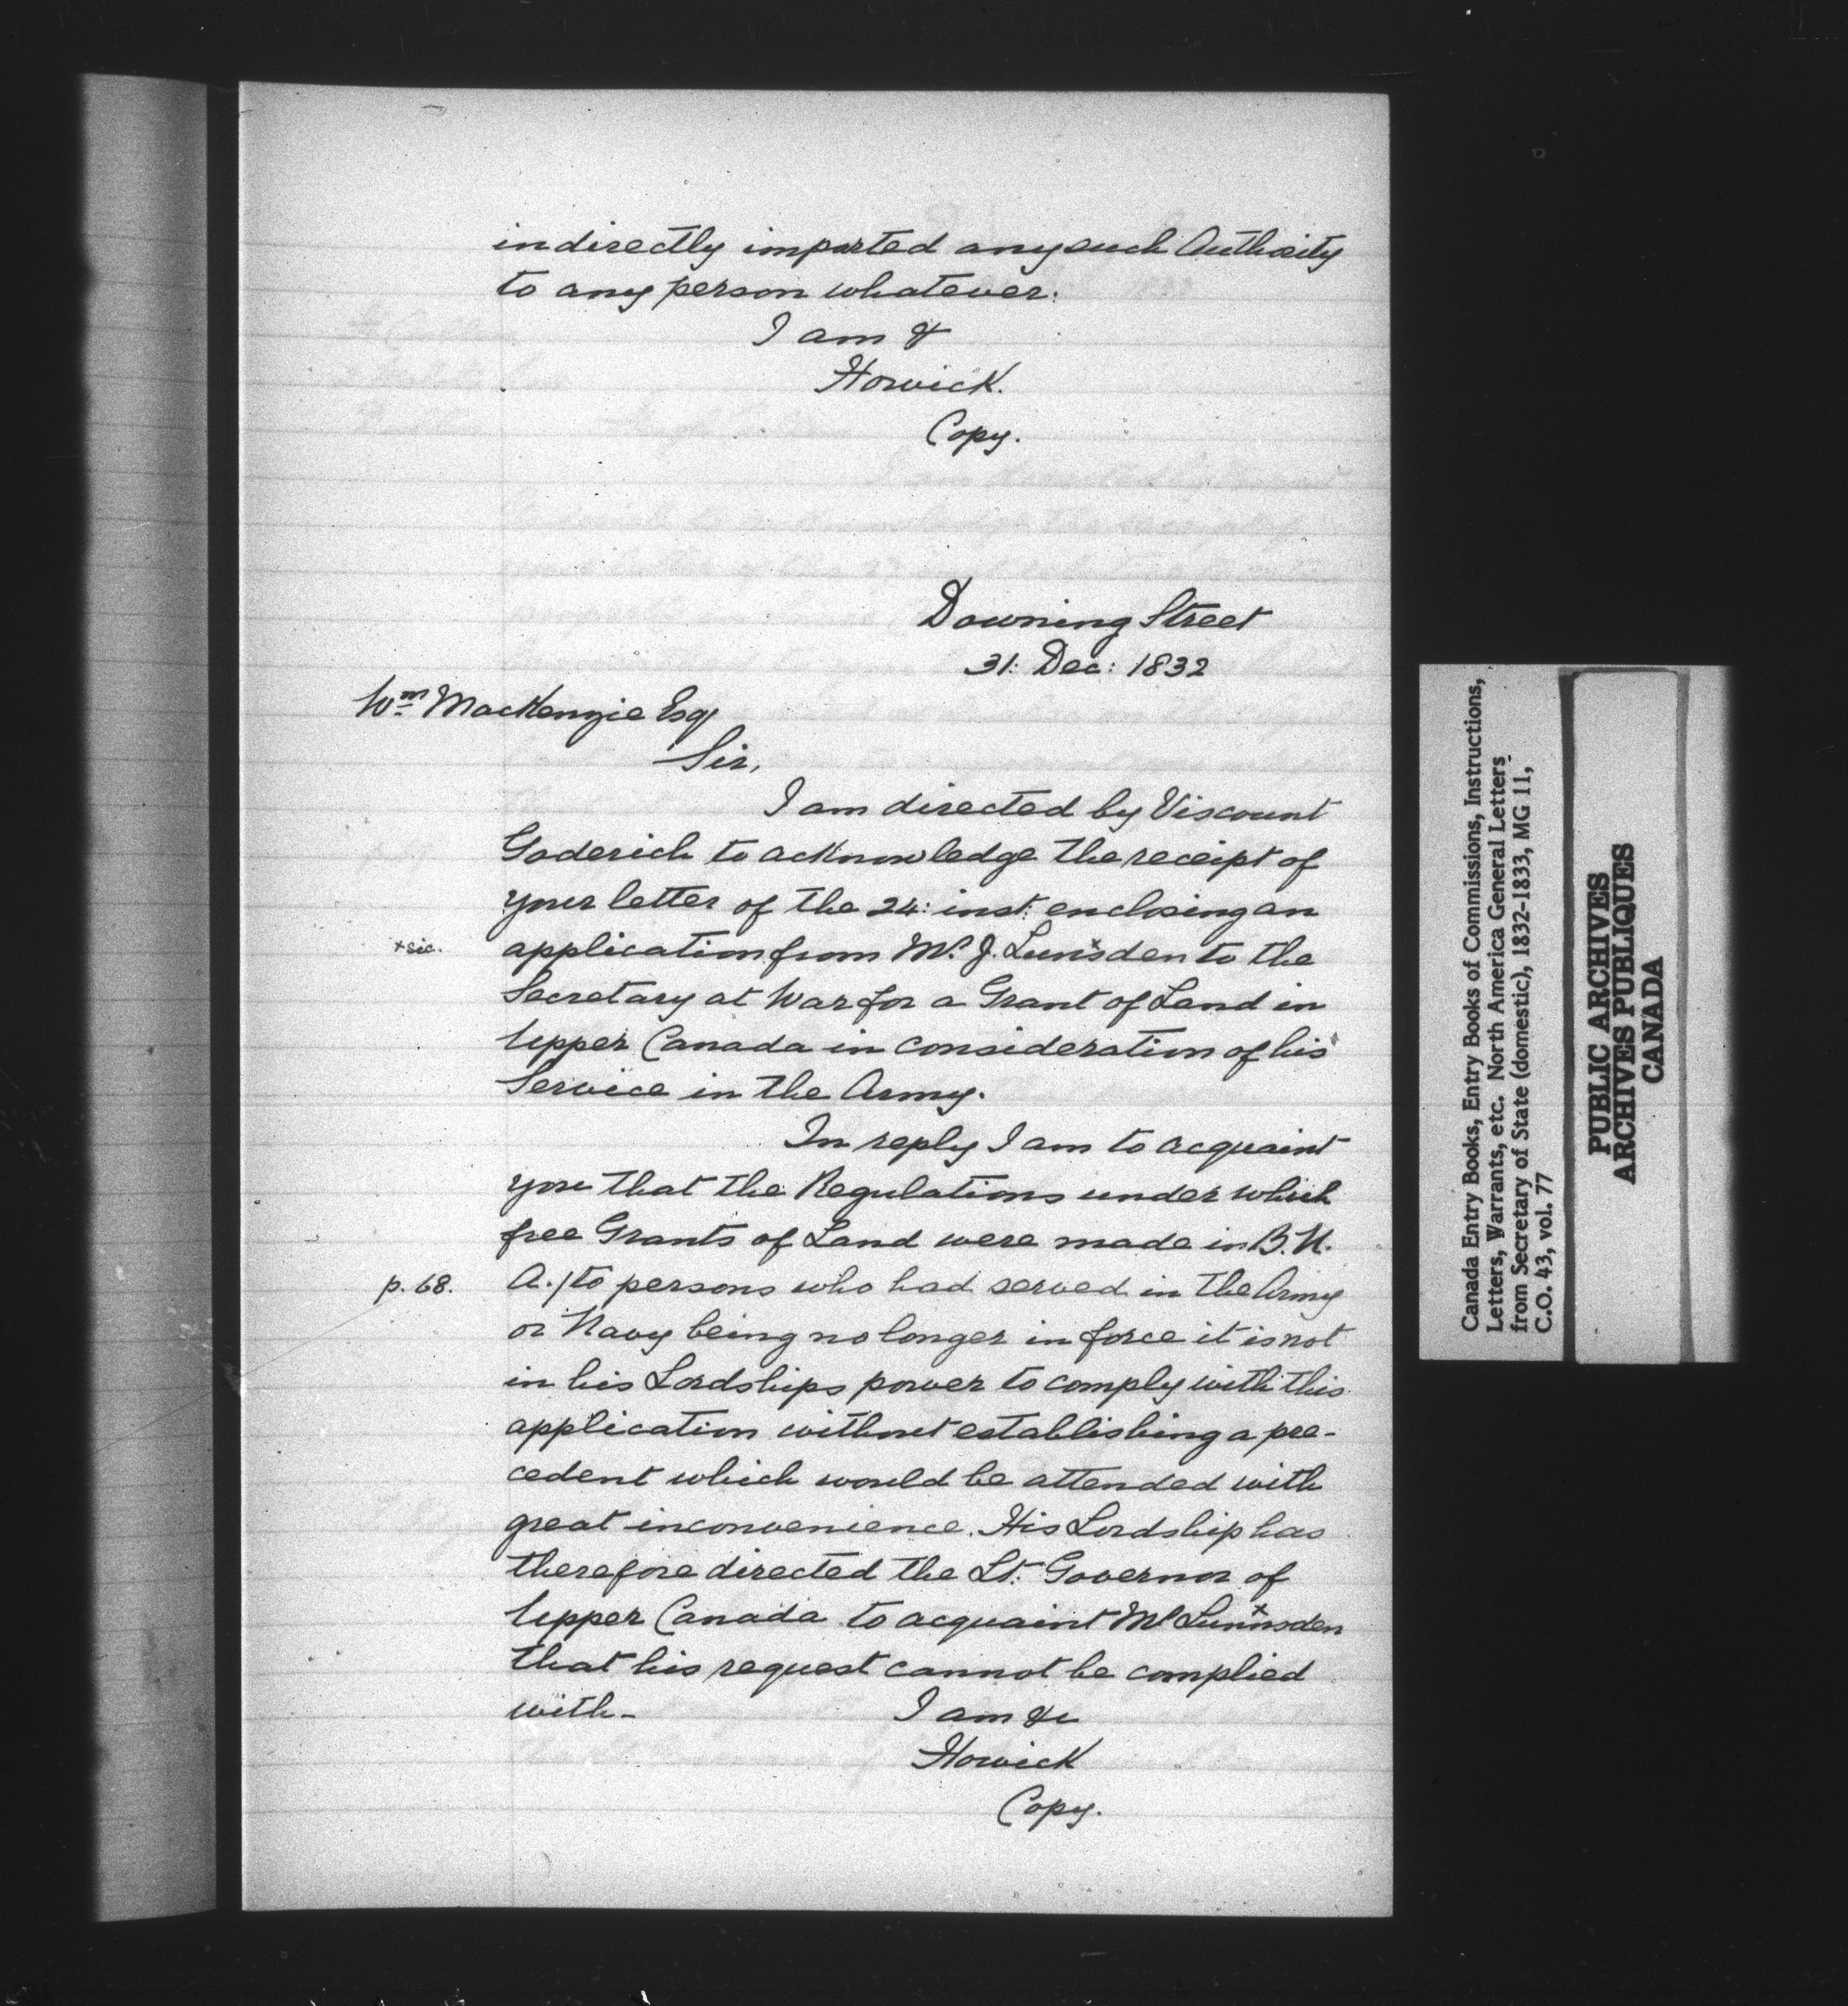 indirectly imparted any such Authority
to any person whatever.
I am &
Howick.
Copy.
Downing Street
31: Dec: 1832
Wm. MacKenzie Esq
Sir,
I am directed by Viscount
Goderich to acknowledge the receipt of
your letter of the 24: inst: enclosing an
+sic. application from Mr. J. Lunsden to the
Secretary at War for a Grant of Land in
Upper Canada in consideration of his
Service in the Army.
In reply I am to acquaint
you that the Regulations under which
free Grants of Land were made in B. N.
p. 68. A./to persons who had served in the Army
or Navy being no longer in force it is not
in his Lordships power to comply with this
application without establishing a pre-
cedent which would be attended with
great inconvenience. His Lordship has
therefore directed the Lt. Governor of
Upper Canada to acquaint Mr Lunnsden
that his request cannot be complied
with- I am &c
Howick
Copy.
Canada Entry Books, Entry Books of Commissions, Instructions,
Letters, Warrants, etc. North America General Letters
from Secretary of State (domestic), 1832-1833, MG 11,
C.O. 43, vol. 77
PUBLIC ARCHIVES
ARCHIVES PUBLIQUES
CANADA